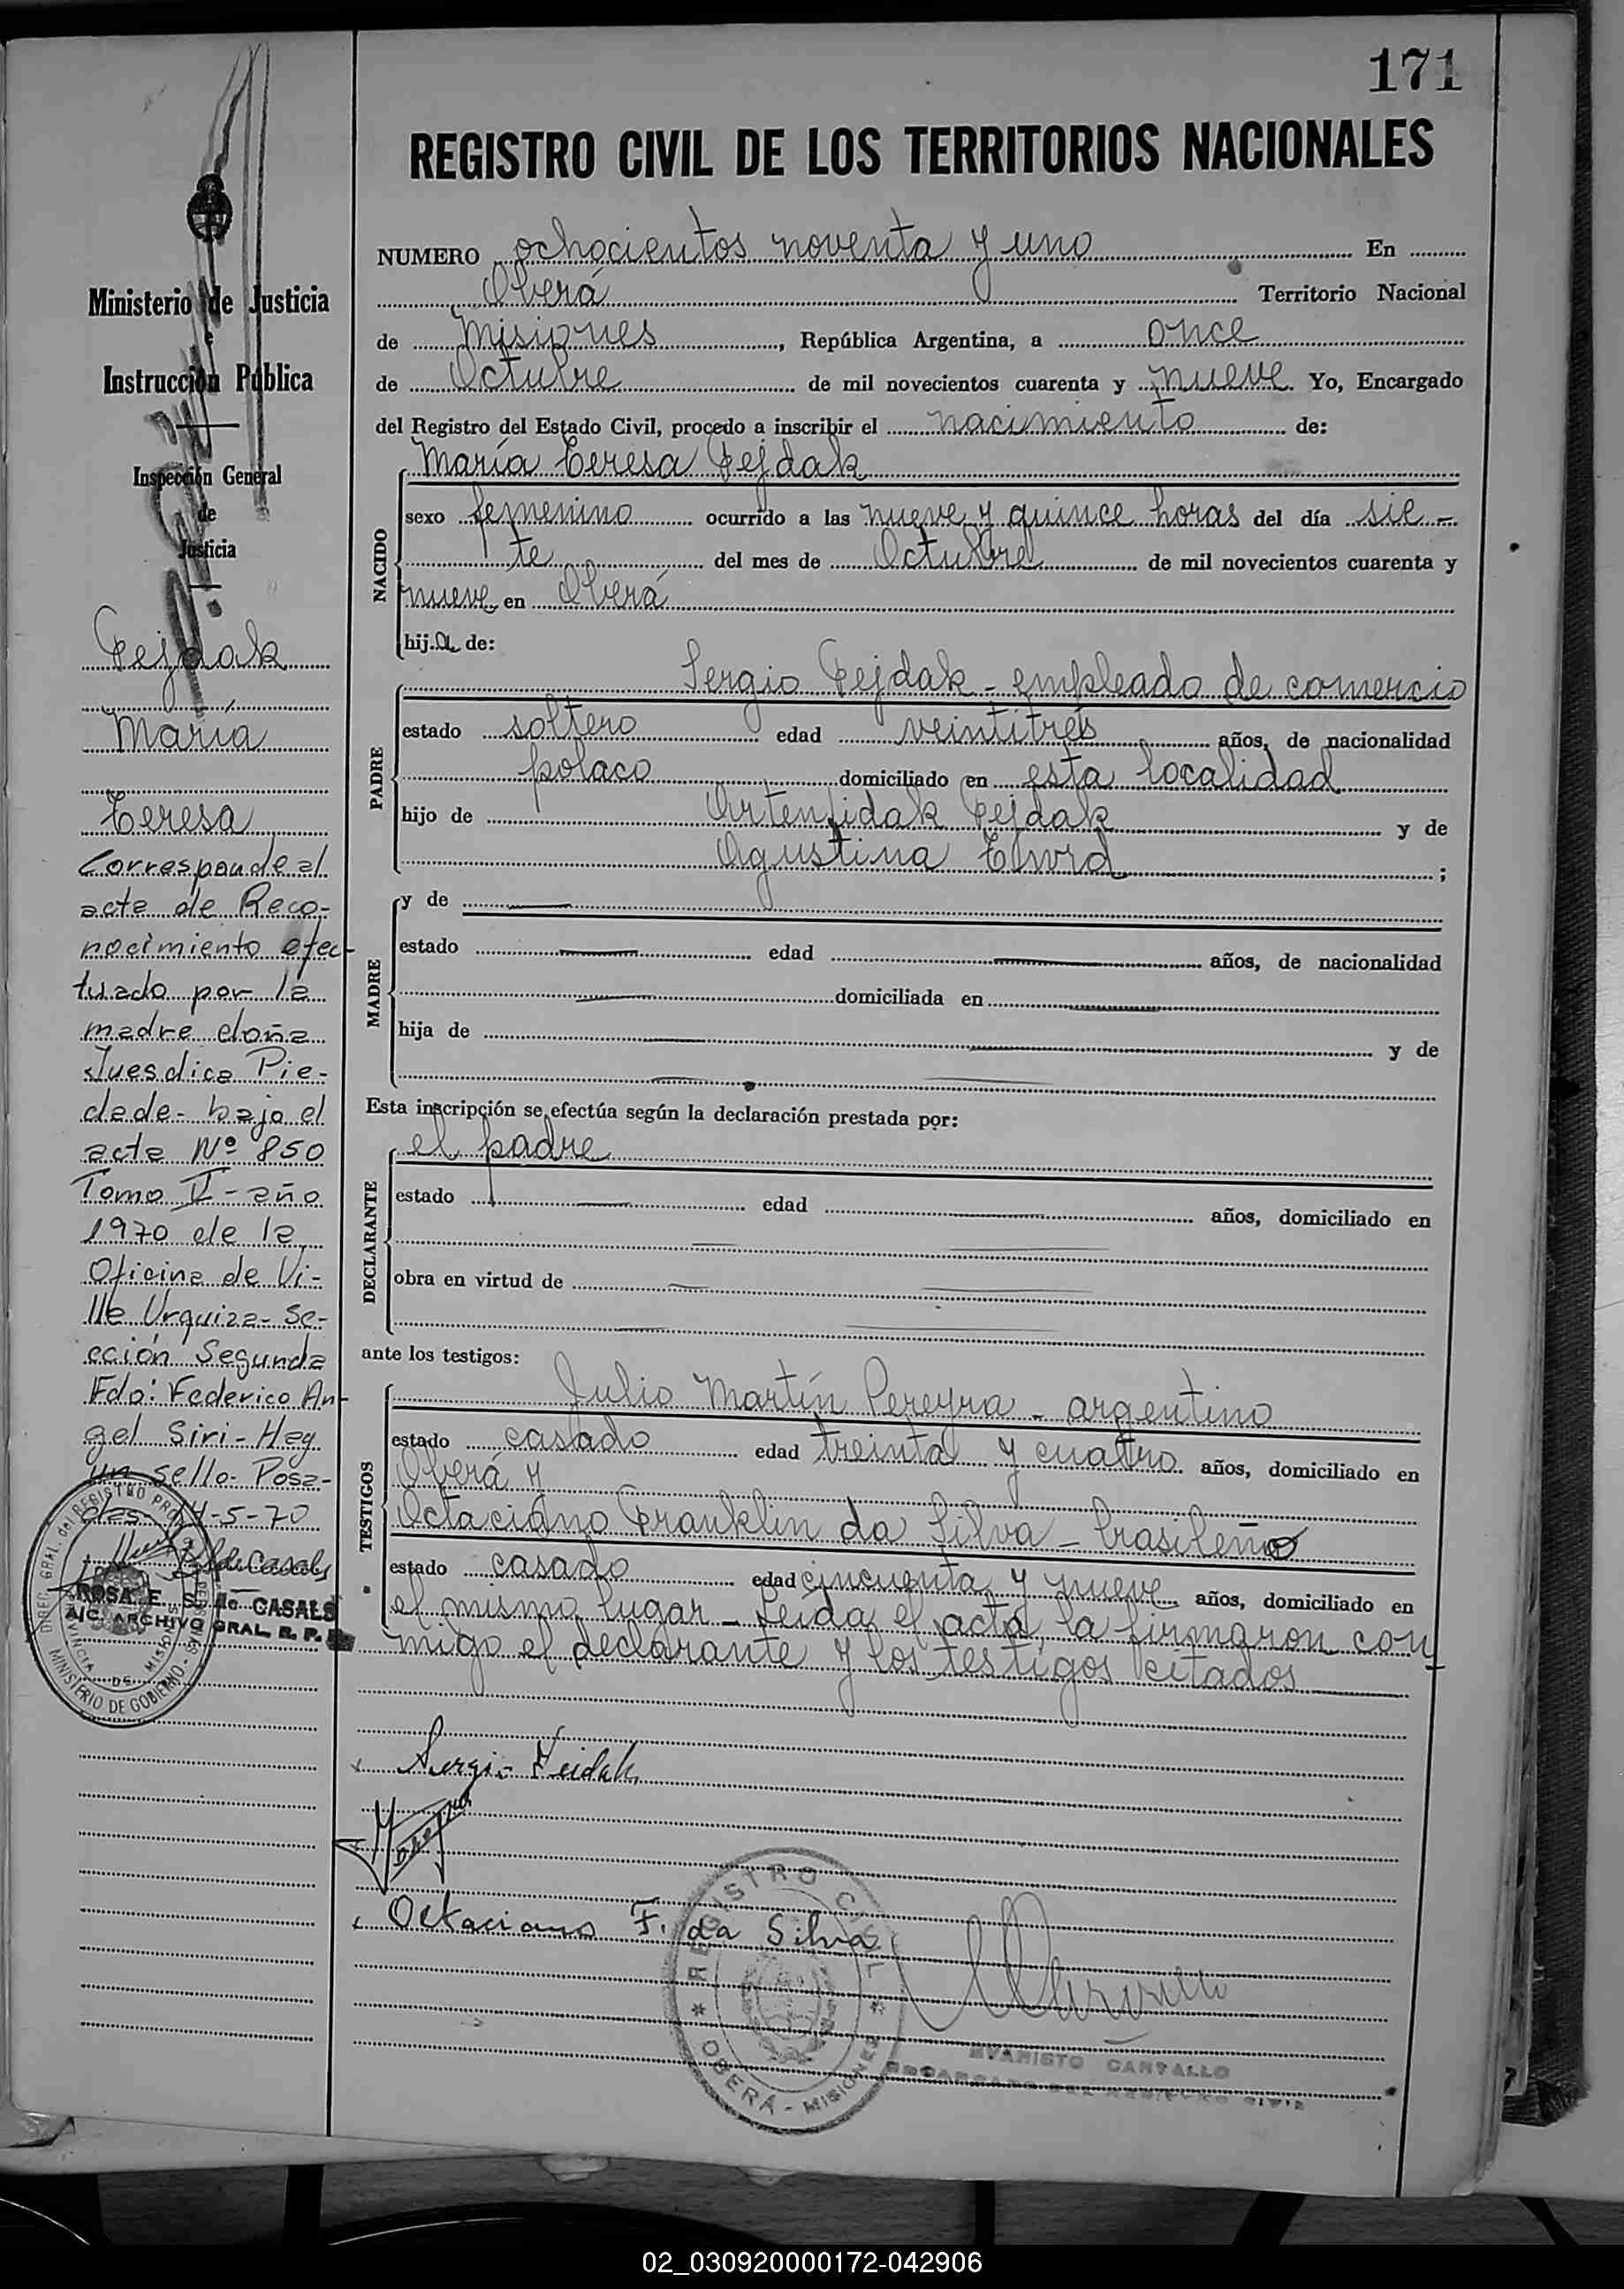 171
REGISTRO CIVIL DE LOS TERRITORIOS NACIONALES
NUMERO ochocientos noventa y uno En
Oberá Territorio Nacional
de Misiones, República Argentina, a once
de Octubre de mil novecientos cuarenta y nueve. Yo, Encargado
del Registro del Estado Civil, procedo a inscribir el nacimiento de:
NACIDO
María Teresa Fejdak
sexo femenino ocurrido a las nueve y quince horas del día sie-
te del mes de Octubre de mil novecientos cuarenta y
nueve en Oberá
hija de:
PADRE
Sergio Fejdak - empleado de comercio
estado soltero edad veintitres años, de nacionalidad
polaco domiciliado en esta localidad
hijo de Fejdak y de
Agustina ;
MADRE
y de
estado edad años, de nacionalidad
domiciliada en
hija de y de
Esta inscripción se efectúa según la declaración prestada por:
DECLARANTE
el padre
estado edad años, domiciliado en
obra en virtud de
ante los testigos:
TESTIGOS
Julio Martín Pereyra - argentino
estado casado edad treinta y cuatro años, domiciliado en
Oberá y
Octaciano Franklin da Silva - brasileño
estado casado edad cincuenta y nueve años, domiciliado en
el mismo lugar - Leída el acta, la firmaron con-
migo el declarante y los testigos citados
Sergio Feidak
Octaciano F. da Silva
REGISTRO CIVIL
OBERÁ - MISIONES
EVARISTO CARVALLO
ENCARGADO DEL REGISTRO CIVIL
Ministerio de Justicia
e
Instrucción Pública
Inspección General
de
Justicia
Fejdak
María
Teresa
Corresponde al
acta de Reco-
nocimiento efec-
tuado por la
madre doña
Juesdica Pie-
dade- bajo el
acta Nº 850
Tomo V - año
1970 de la
Oficina de Vi-
lla Urquiza- Se-
cción Segunda
Fdo: Federico An-
gel Siri - Hay
un sello- Posa-
das- 14-5-70
ROSA E. S. de CASALS
A/C. ARCHIVO GRAL. R. P.
DIREC. GRAL. del REGISTRO PROV.
PROVINCIA DE MISIONES
MINISTERIO DE GOBIERNO
02_030920000172-042906